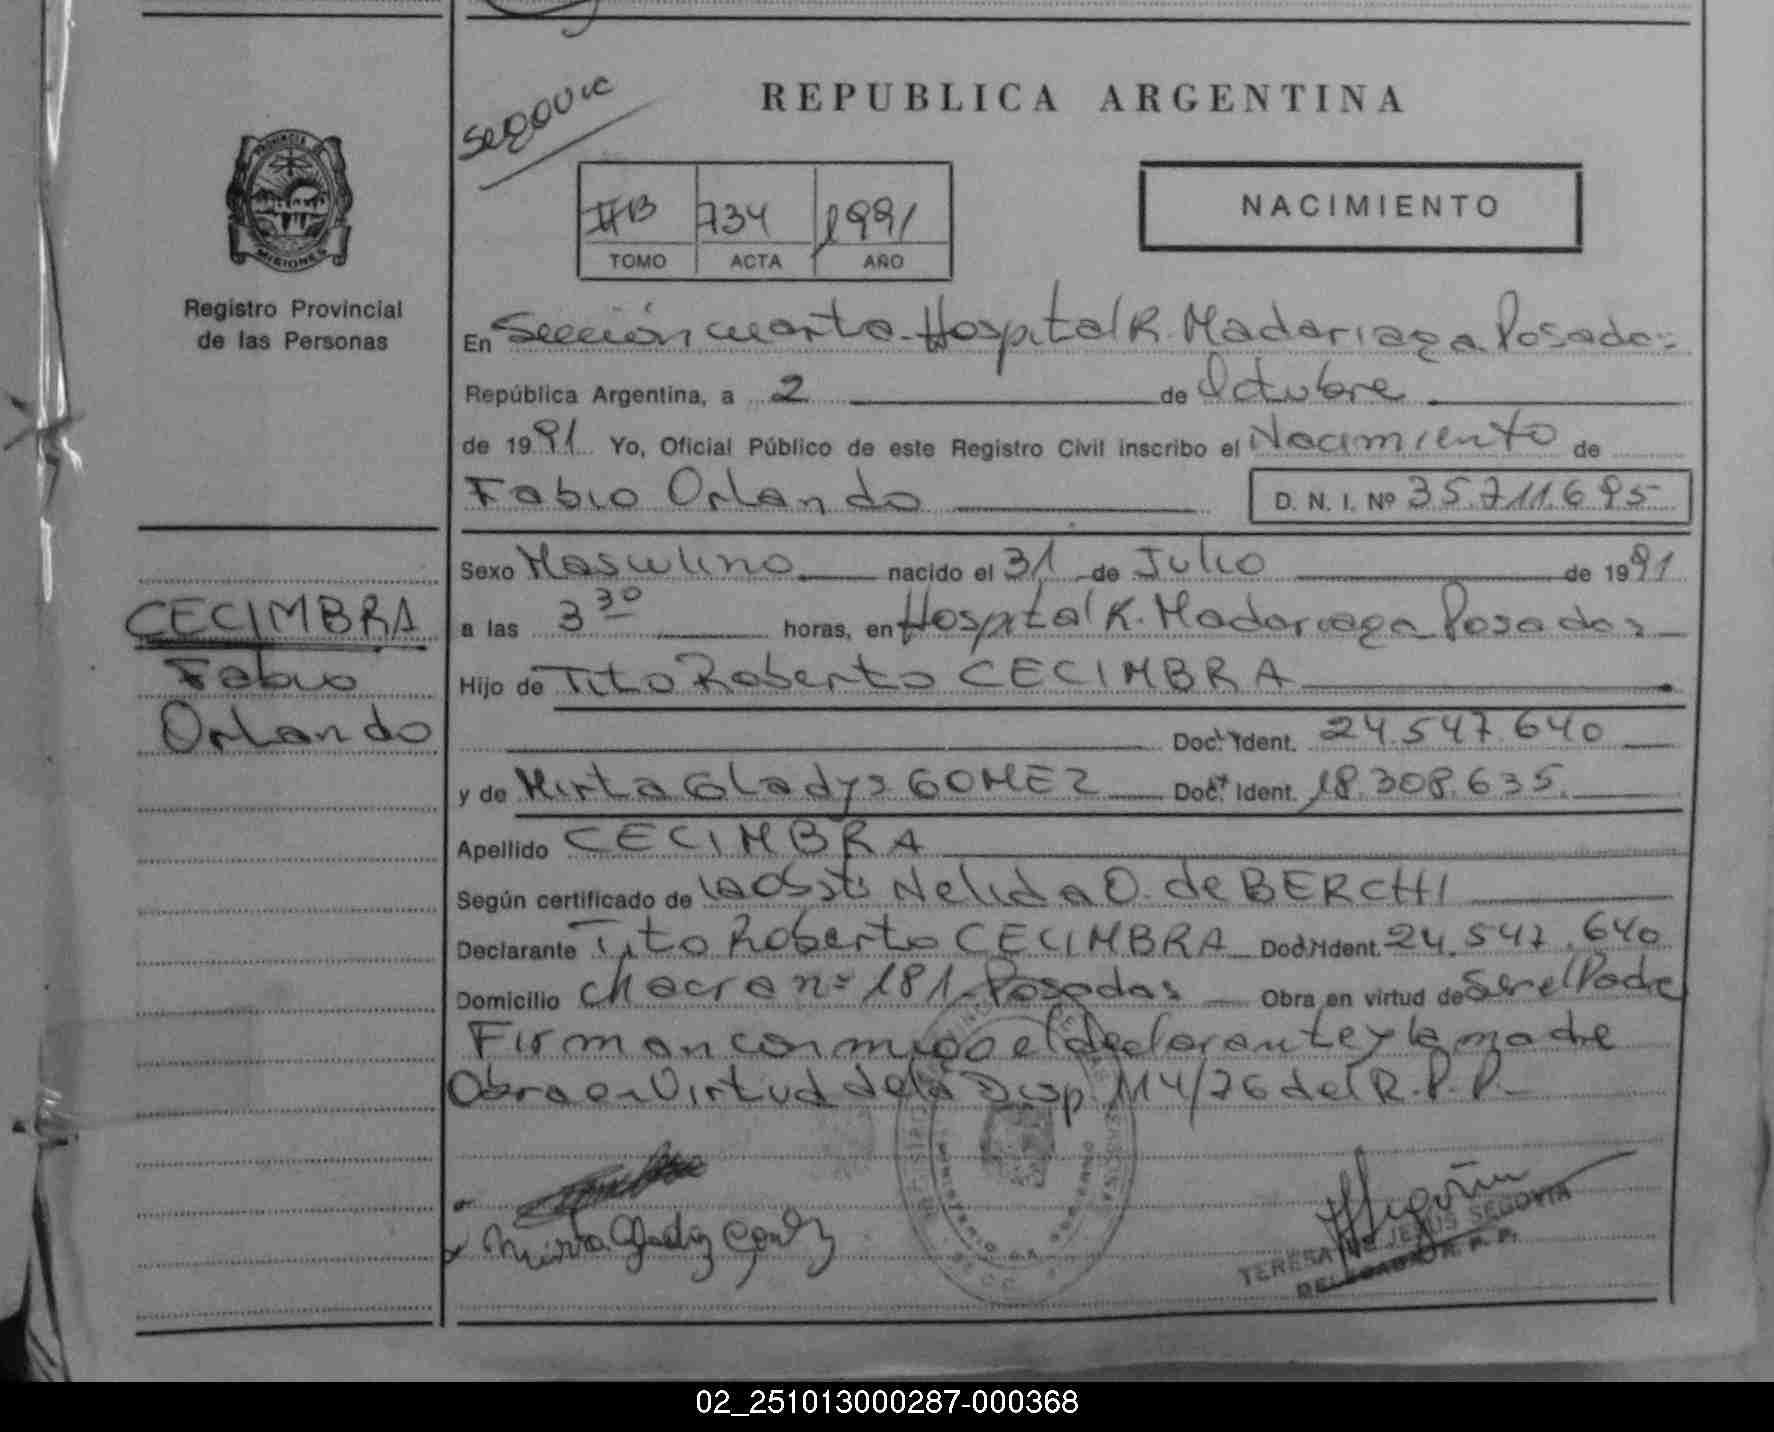 Segovia
REPUBLICA ARGENTINA
PROVINCIA
MISIONES
Registro Provincial
de las Personas
II B 734 1991
TOMO ACTA AÑO
NACIMIENTO
En Sección cuarta - Hospital R. Madariaga Posadas
República Argentina, a 2 de Octubre
de 1991 Yo, Oficial Público de este Registro Civil inscribo el Nacimiento de
Fabio Orlando D. N. I. Nº 35.711.695
Sexo Masculino nacido el 31 de Julio de 1991
a las 3 30 horas, en Hospital R. Madariaga Posadas
Hijo de Tito Roberto CECIMBRA
Doc. Ident. 24.547.640
y de Mirta Gladys GOMEZ Doc. Ident. 18.308.635.
Apellido CECIMBRA
Según certificado de la Obst. Nelida O. de BERCHI
Declarante Tito Roberto CECIMBRA Doc. Ident. 24.547.640
Domicilio Chacra nº 181 - Posadas Obra en virtud de Ser el Padre
Firman conmigo el declarante y la madre
Obra en Virtud de la Disp. 114/76 del R.P.P.-
CECIMBRA
Fabio
Orlando
TERESA DE JESUS SEGOVIA
DELEGADA R. P. P.
02_251013000287-000368